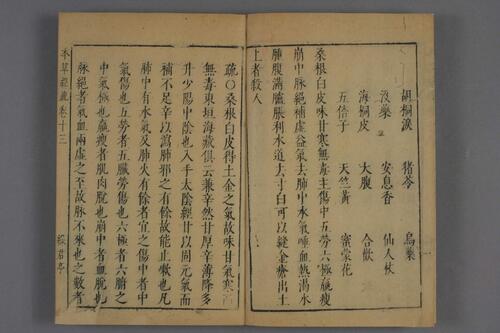 胡桐淚 豬苓 烏藥
沒藥 安息香 仙人杖
海桐皮 大腹 合歡
五倍子 天竺黃 蜜蒙花
桑根白皮味甘寒無毒主傷中五勞六極羸瘦
崩中脉絕補虛益氣去肺中水氣唾血熱渴水
腫腹滿臚脹利水道去寸白可以縫金瘡出土
上者殺人
疏○桑根白皮得土金之氣故味甘氣寒而
無毒東垣海藏俱云兼辛然甘厚辛薄降多
升少陽中陰也入手太陰經甘以固元氣而
補不足辛以瀉肺邪之有餘故能止嗽也凡
肺中有水氣及肺火有餘者宜之傷中者中
氣傷也五勞者五臟勞傷也六極者六腑之
中氣極也羸瘦者肌肉脫也崩中者血脫也
脉絕者氣血兩虛之至故脉不來也之數者
本草經疏卷十三
綠君亭